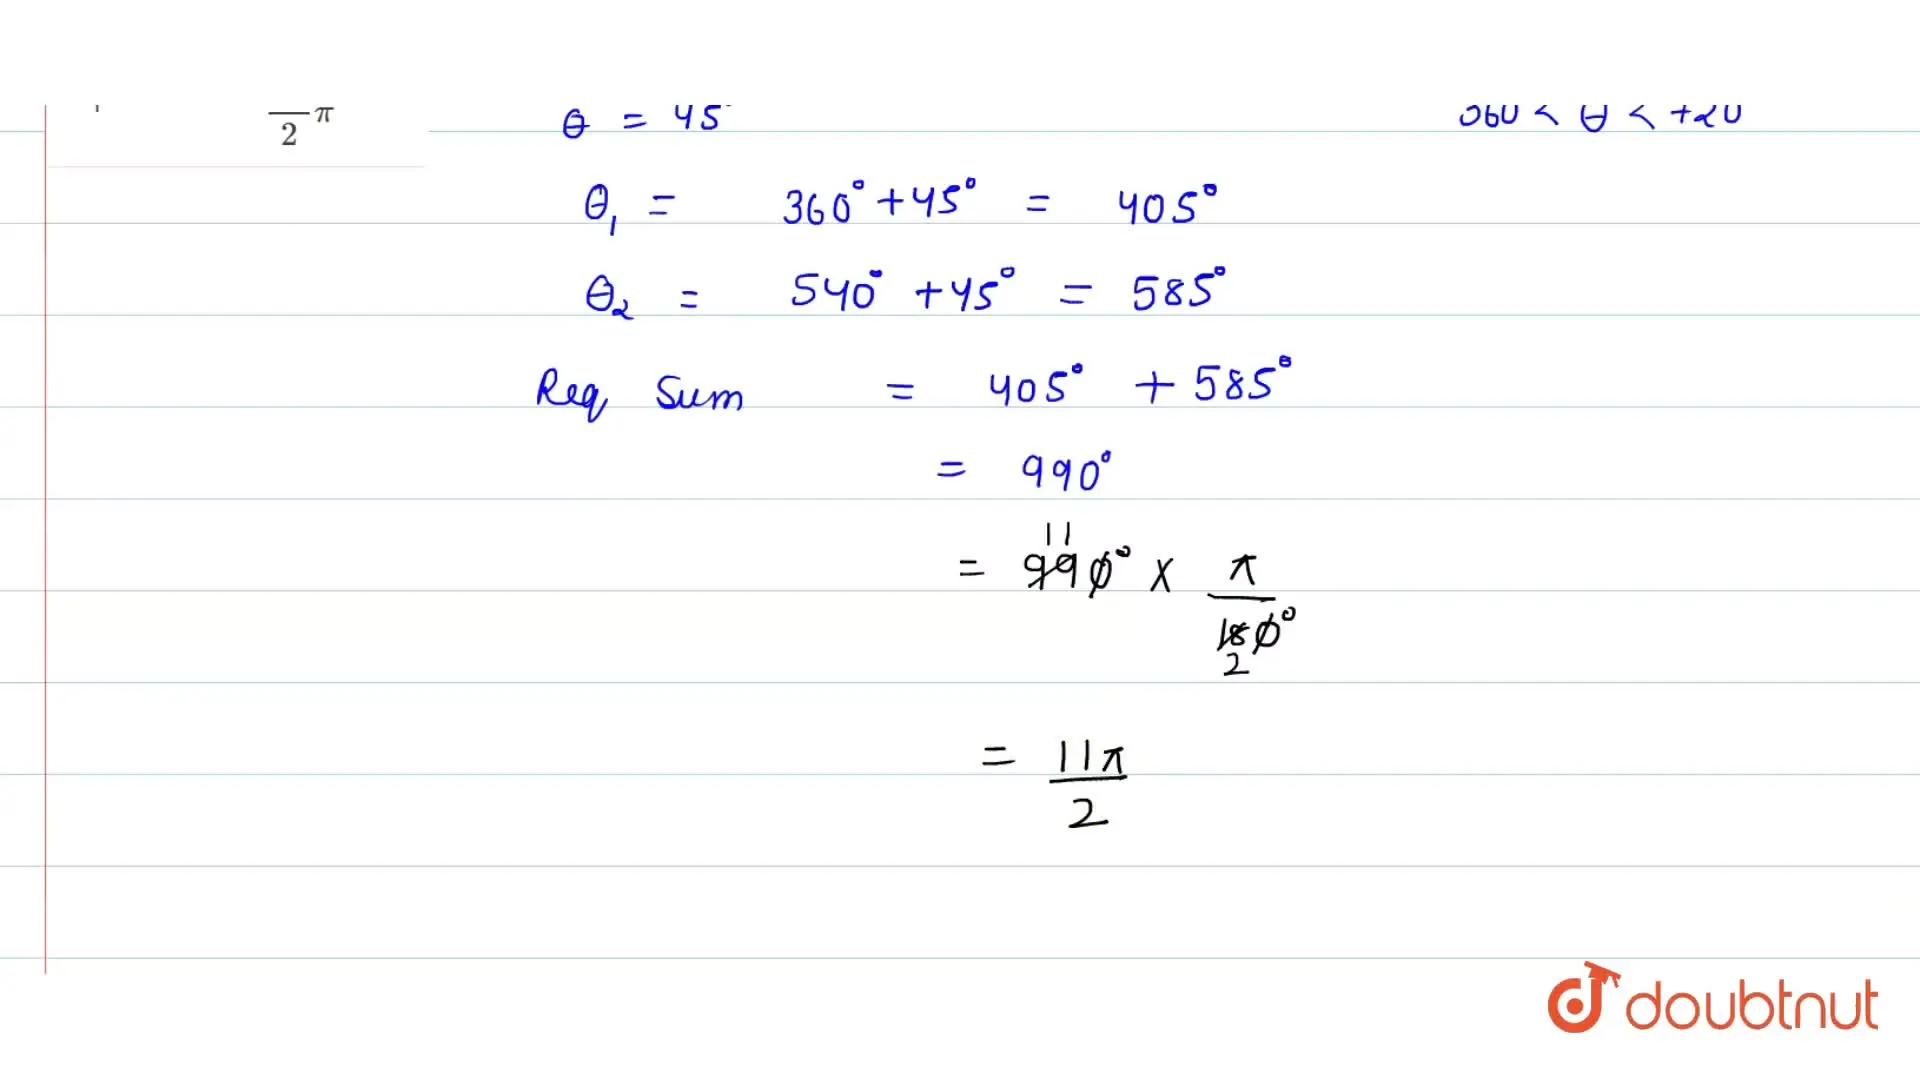 2 π
θ = 45°
360 < θ < 720
θ₁ = 360° + 45° = 405°
θ₂ = 540° + 45° = 585°
Req Sum = 405° + 585°
= 990°
11
= 990° × π
180°
2
= 11π
2
doubtnut